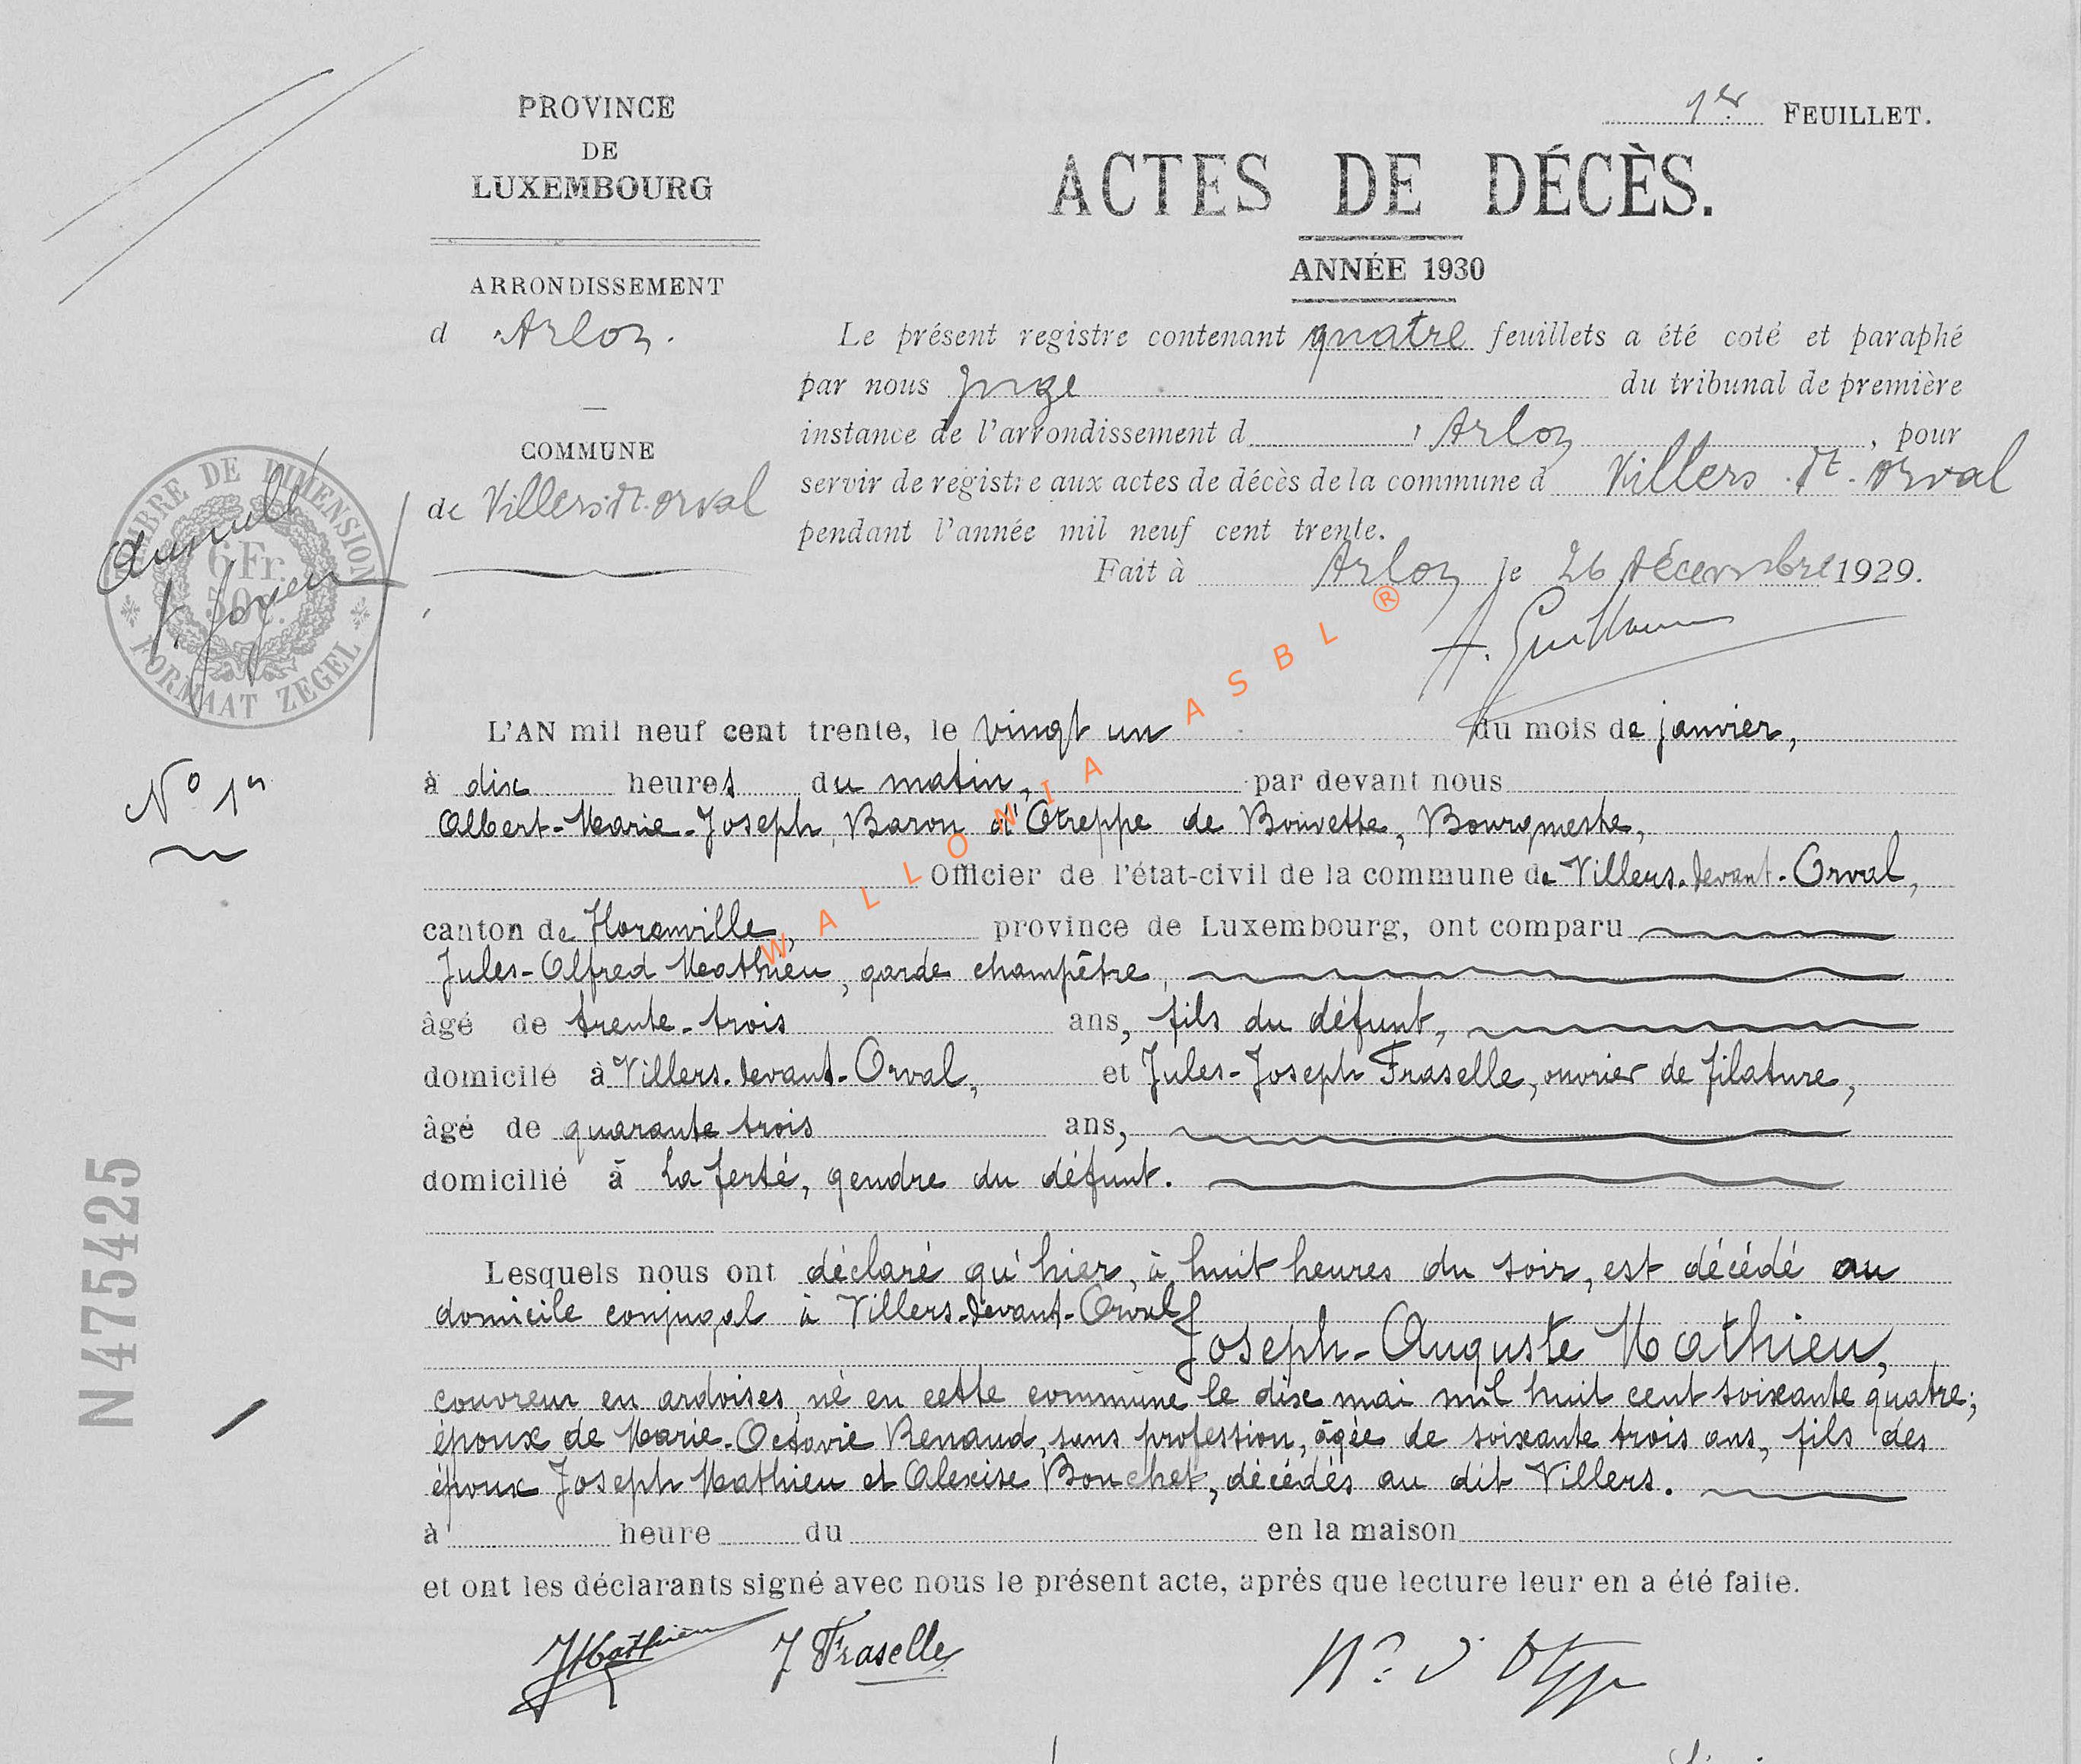 1er FEUILLET.
PROVINCE
DE
LUXEMBOURG
ACTES DE DÉCÈS.
ANNÉE 1930
ARRONDISSEMENT
d'Arlon.
COMMUNE
de Villers dt. Orval
Le présent registre contenant quatre feuillets a été coté et paraphé
par nous Juge du tribunal de première
instance de l'arrondissement d'Arlon, pour
servir de registre aux actes de décès de la commune d Villers dt. Orval
pendant l'année mil neuf cent trente.
Fait à Arlon le 26 Décembre 1929.
A. Guillaume
TIMBRE DE DIMENSION
6 Fr.
50 c.
FORMAAT ZEGEL
Annulé
WALLONIA ASBL ®
N° 1er
L'AN mil neuf cent trente, le vingt un du mois de janvier,
à dix heures du matin, par devant nous
Albert-Marie-Joseph, Baron d'Otreppe de Bouvette, Bourgmestre,
Officier de l'état-civil de la commune de Villers-devant-Orval,
canton de Florenville, province de Luxembourg, ont comparu
Jules-Alfred Mathieu, garde champêtre,
âgé de trente-trois ans, fils du défunt,
domicilé à Villers-devant-Orval, et Jules-Joseph Fraselle, ouvrier de filature,
âgé de quarante trois ans,
domicilié à La ferté, gendre du défunt.
Lesquels nous ont déclaré qu'hier, à huit heures du soir, est décédé au
domicile conjugal à Villers-devant-Orval
Joseph-Auguste Mathieu,
couvreur en ardoises, né en cette commune le dix mai mil huit cent soixante quatre;
époux de Marie-Octavie Renaud, sans profession, âgée de soixante trois ans, fils des
époux Joseph Mathieu et Alexise Bouchet, décédés au dit Villers.
à heure du en la maison
et ont les déclarants signé avec nous le présent acte, après que lecture leur en a été faite.
JMathieu J Fraselle
N475425